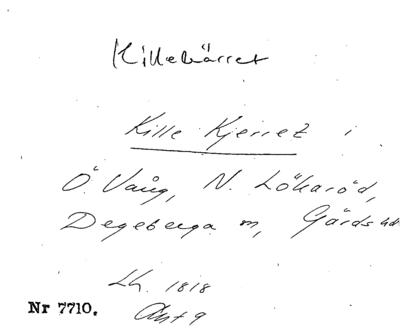 Killekärret
Kille Kjerret i
Ö. Vång, N. Lökaröd,
Degeberga sn, Gärds hd
Lh. 1818
Akt 9
Nr 7710.